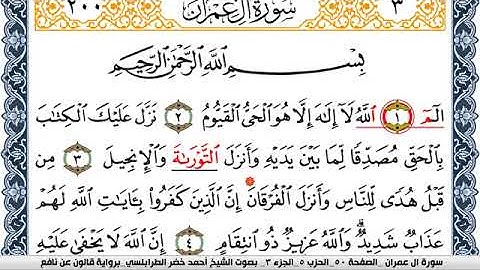 ٢٠٠ سُورَةُ آلِ عِمْرَانَ ٣
بِسْمِ اللَّهِ الرَّحْمَٰنِ الرَّحِيمِ
الٓمٓ ١ اَللَّهُ لَا إِلَٰهَ إِلَّا هُوَ الْحَيُّ الْقَيُّومُ ٢ نَزَّلَ عَلَيْكَ الْكِتَابَ
بِالْحَقِّ مُصَدِّقًا لِمَا بَيْنَ يَدَيْهِ وَأَنزَلَ التَّوْرَىٰةَ وَالْإِنجِيلَ ٣ مِن
قَبْلُ هُدًى لِلنَّاسِ وَأَنزَلَ الْفُرْقَانَ إِنَّ الَّذِينَ كَفَرُوا بِـَٔايَاتِ اللَّهِ لَهُمْ
عَذَابٌ شَدِيدٌ وَاللَّهُ عَزِيزٌ ذُو انتِقَامٍ ٤ إِنَّ اللَّهَ لَا يَخْفَىٰ عَلَيْهِ
سورة ال عمران _ الصفحة ٥٠_الحزب ٥_الجزء ٣_ بصوت الشيخ أحمد خضر الطرابلسي_برواية قالون عن نافع